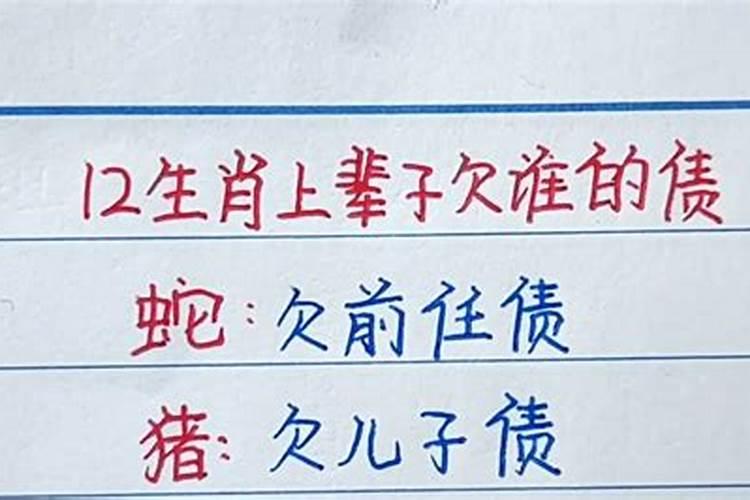 12生肖上辈子欠谁的债
蛇：欠前任债
猪：欠儿子债